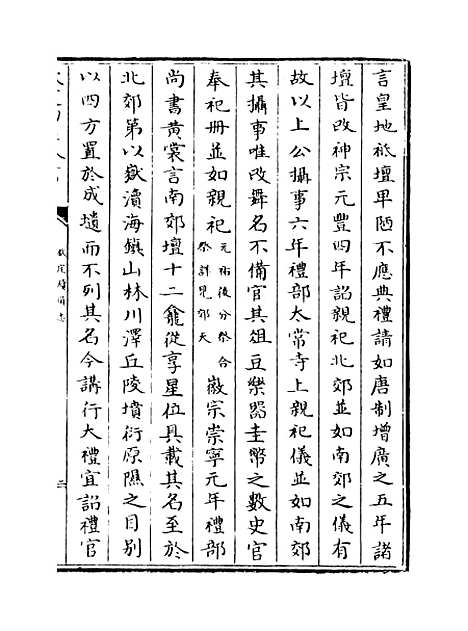 言皇地祗壇卑陋不應典禮請如唐制增廣之五年諸
壇皆改神宗元豐四年詔親祀北郊並如南郊之儀有
故以上公攝事六年禮部太常寺上親祀儀並如南郊
其攝事唯改舞名不備官其俎豆樂器圭幣之數史官
奉祀冊並如親祀元祐後分祭合祭詳見郊天徽宗崇寧元年禮部
尚書黃裳言南郊壇十二龕從享星位具載其名至於
北郊第以嶽瀆海鎮山林川澤丘陵墳衍原隰之目別
以四方置於成壝而不列其名今講行大禮宜詔禮官
欽定續通志
三